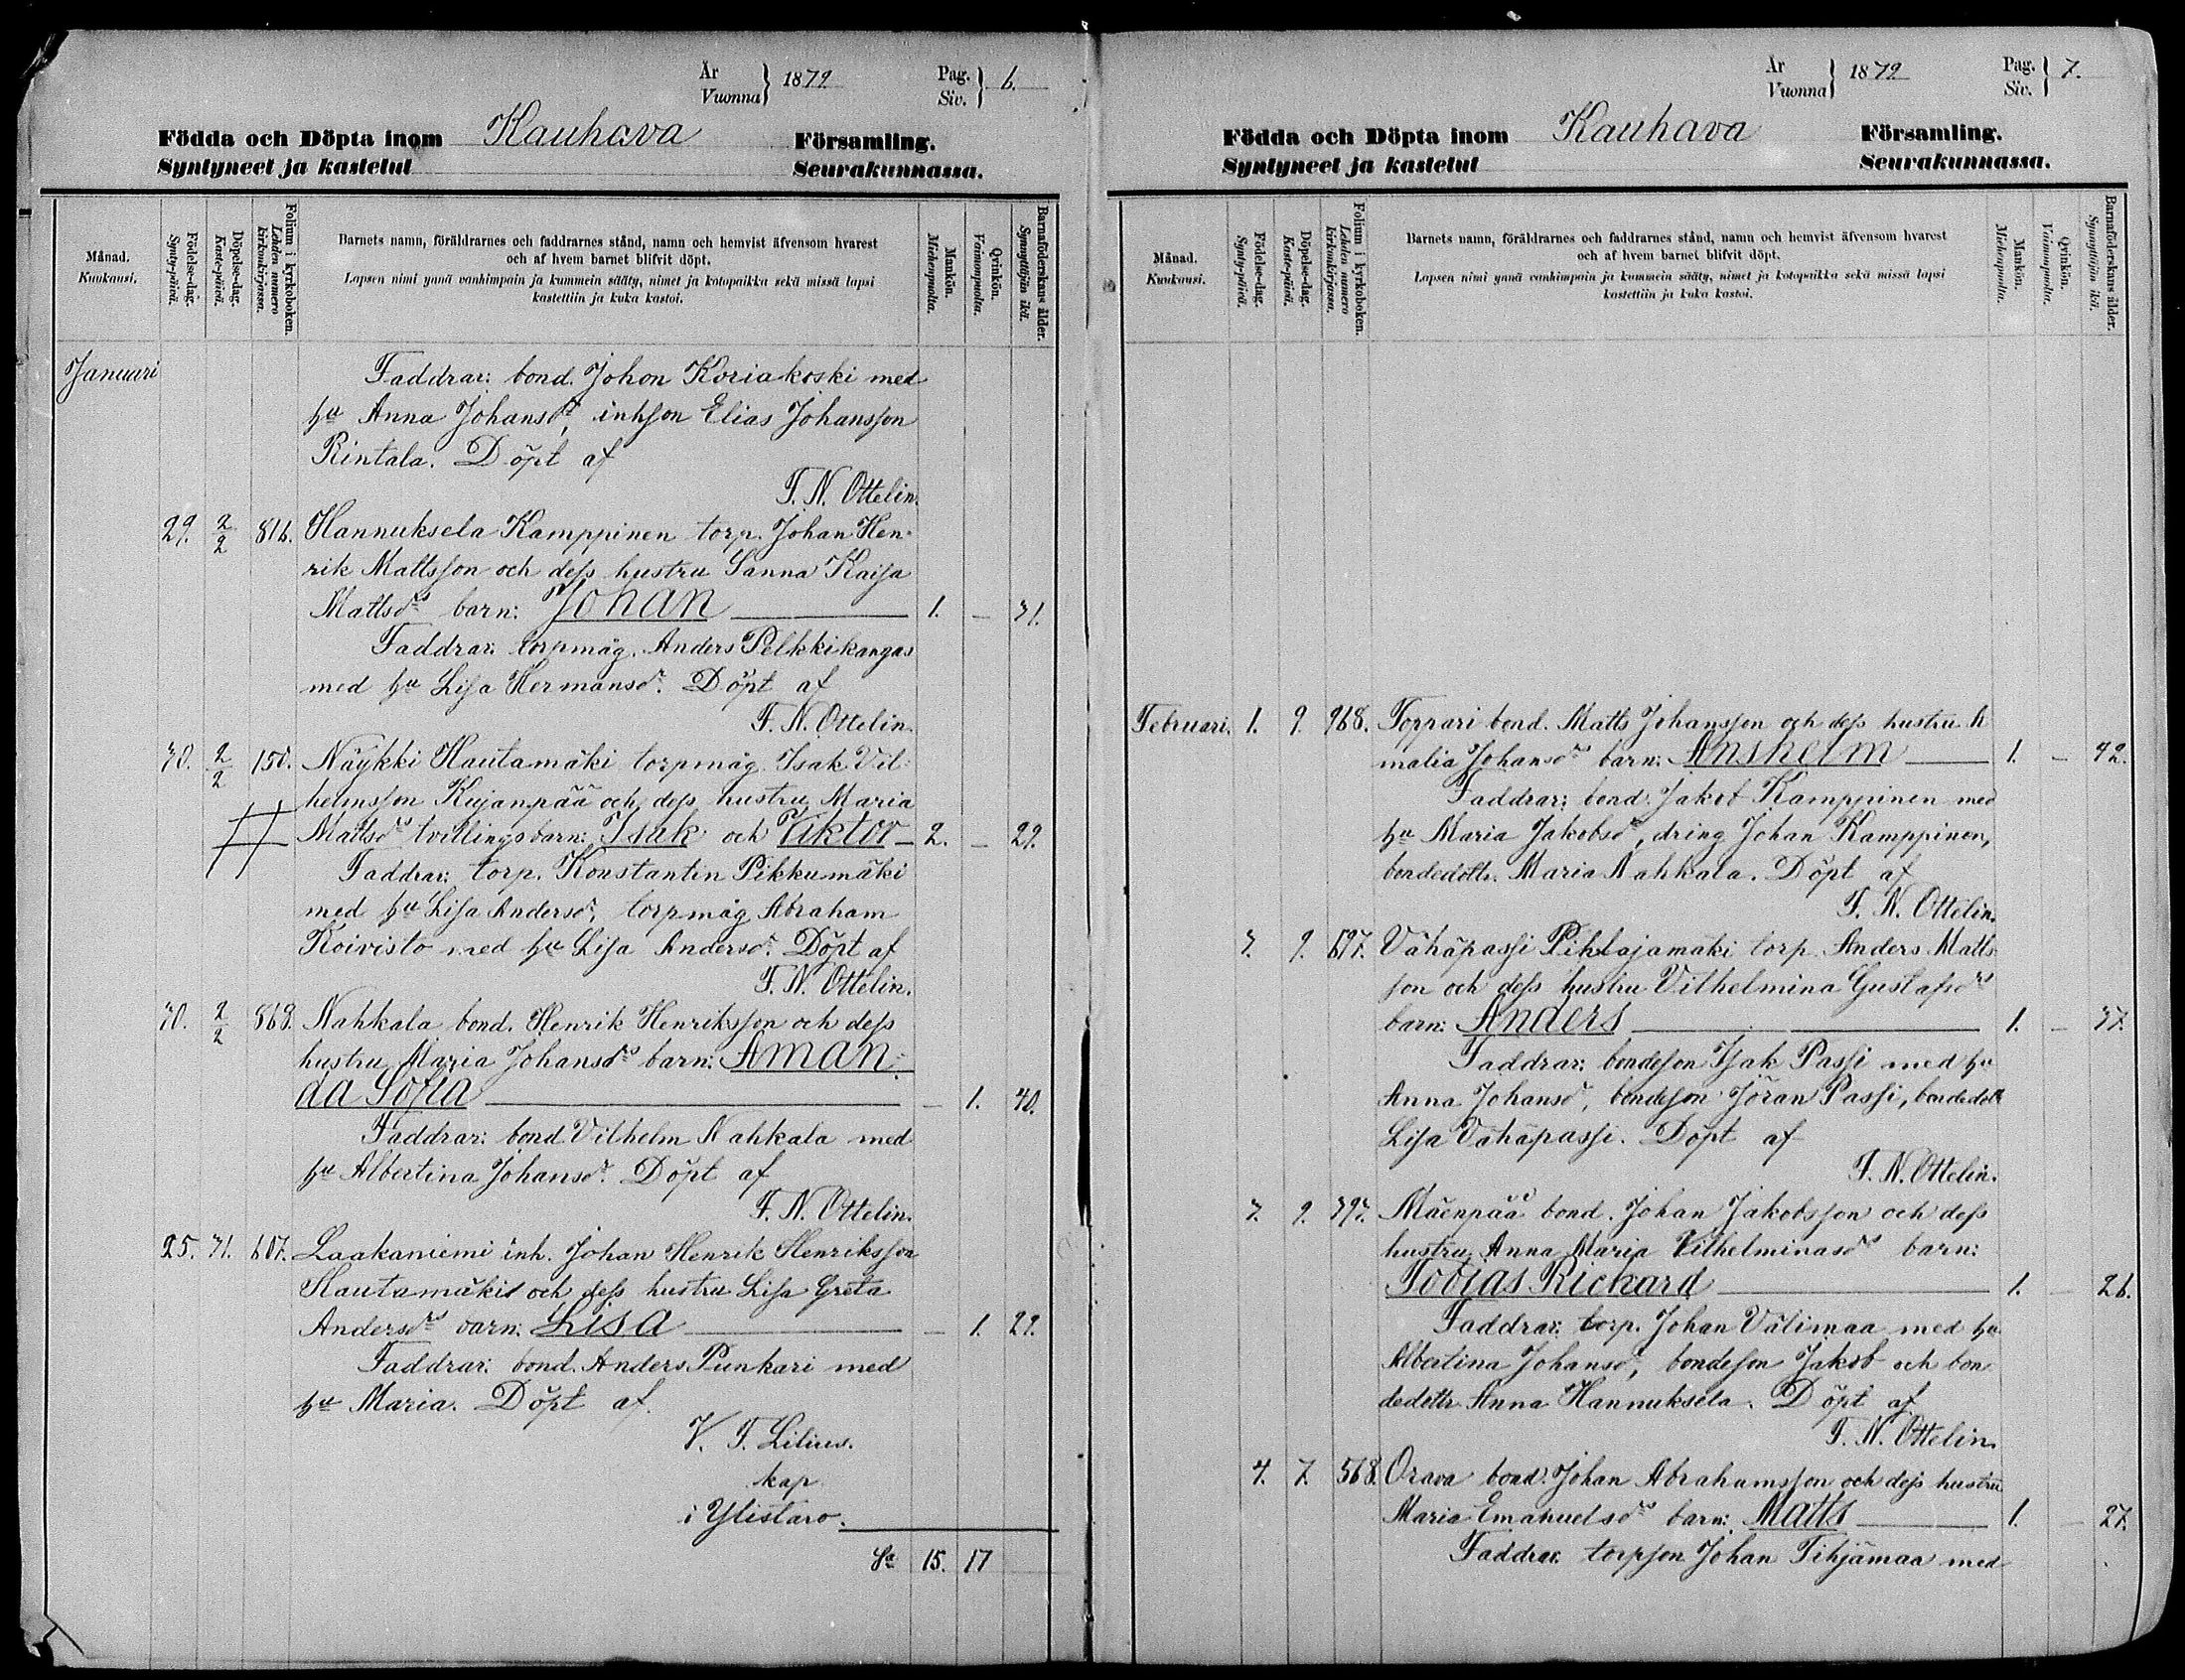 År
Vuonna } 1879. Pag.
Siv. } 6.
Födda och Döpta inom Kauhava Församling.
Syntyneet ja kastetut Seurakunnassa.
Månad.
Kuukausi.
Födelse-dag.
Synty-päivä.
Döpelse-dag.
Kaste-päivä.
Folium i kyrkoboken.
Lehden numero
kirkonkirjassa.
Barnets namn, föräldrarnes och faddrarnes stånd, namn och hemvist äfvensom hvarest
och af hvem barnet blifvit döpt.
Lapsen nimi ynnä vanhimpain ja kummein sääty, nimet ja kotopaikka sekä missä lapsi
kastettiin ja kuka kastoi.
Mankön.
Miehenpuolta.
Qvinkön.
Vaimonpuolta.
Barnaföderskans ålder.
Synnyttäjän ikä.
Januari Faddrar: bond. Johon Koriakoski med
hu Anna Johansdr, inhson Elias Johansson
Rintala. Döpt af
F. N. Ottelin.
29. 2/2 816. Hannuksela Kamppinen torp. Johan Hen-
rik Mattsson och dess hustru Sanna Kaisa
Mattsdrs barn: Johan 1. — 31.
Faddrar: torpmåg. Anders Pelkkikangas
med hu Lisa Hermansdr. Döpt af
F. N. Ottelin.
30. 2/2 150. Näykki Hautamäki torpmåg Isak Vil-
helmsson Kujanpää och dess hustru Maria
Mattsdrs tvillingsbarn: Isak och Viktor — 2. — 29.
Faddrar: torp. Konstantin Pikkumäki
med hu Lisa Andersdr, torpmåg Abraham
Koivisto med hu Lisa Andersdr. Döpt af
F. N. Ottelin.
30. 2/2 868. Nahkala bond. Henrik Henriksson och dess
hustru Maria Johansdrs barn: Aman-
da Sofia — 1. 40.
Faddrar: bond Vilhelm Nahkala med
hu Albertina Johansdr. Döpt af
F. N. Ottelin.
25. 31. 607. Laakaniemi inh. Johan Henrik Henriksson
Hautamäki och dess hustru Lisa Greta
Andersdrs barn: Lisa — 1. 29.
Faddrar: bond. Anders Punkari med
hu Maria. Döpt af
V. F. Lilius.
kap.
i Ylistaro.
Sa 15. 17
År
Vuonna } 1879 Pag.
Siv. } 7.
Födda och Döpta inom Kauhava Församling.
Syntyneet ja kastetut Seurakunnassa.
Månad.
Kuukausi.
Födelse-dag.
Synty-päivä.
Döpelse-dag.
Kaste-päivä.
Folium i kyrkoboken.
Lehden numero
kirkonkirjassa.
Barnets namn, föräldrarnes och faddrarnes stånd, namn och hemvist äfvensom hvarest
och af hvem barnet blifvit döpt.
Lapsen nimi ynnä vanhimpain ja kummein sääty, nimet ja kotopaikka sekä missä lapsi
kastettiin ja kuka kastoi.
Mankön.
Miehenpuolta.
Qvinkön.
Vaimonpuolta.
Barnaföderskans ålder.
Synnyttäjän ikä.
Februari. 1. 9. 968. Torppari bond. Matts Johansson och dess hustru A
malia Johansdrs barn: Anshelm 1. — 42.
Faddrar: bond. Jakob Kamppinen med
hu Maria Jakobsdr, dräng Johan Kamppinen,
bondedottr. Maria Nahkala. Döpt af
F. N. Ottelin.
3. 9. 697. Vähäpassi Pihlajamäki torp. Anders Matts
son och dess hustru Vilhelmina Gustafsdrs
barn: Anders 1. — 37.
Faddrar: bondeson Isak Passi med hu
Anna Johansdr, bondeson Jöran Passi, bondedottr
Lisa Vähäpassi. Döpt af
F. N. Ottelin.
3. 9. 397. Mäenpää bond. Johan Jakobsson och dess
hustru Anna Maria Vilhelminasdrs barn:
Tobias Rickard 1. — 26.
Faddrar: torp. Johan Välimaa med hu
Albertina Johansdr, bondeson Jakob och bon
dedottr Anna Hannuksela. Döpt af
F. N. Ottelin.
4. 7. 568. Orava bond. Johan Abrahamsson och dess hustru
Maria Emanuelsdrs barn: Matts 1. — 27.
Faddrar: torpson Johan Tihjämaa med